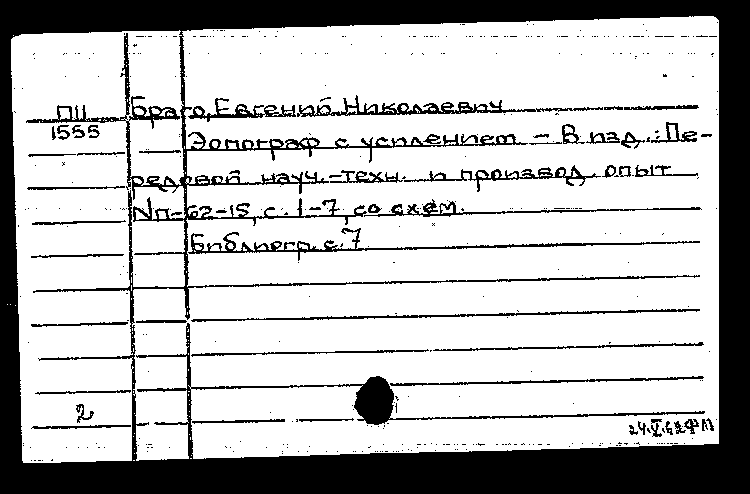 П11 Браго, Евгений Николаевич
1555 Эопограф с усилением – В изд.: Пе-
редовой науч.-техн. и производ. опыт
№п-62-15, с. 1-7, со схем.
Библиогр. с. 7
2
24.V.62